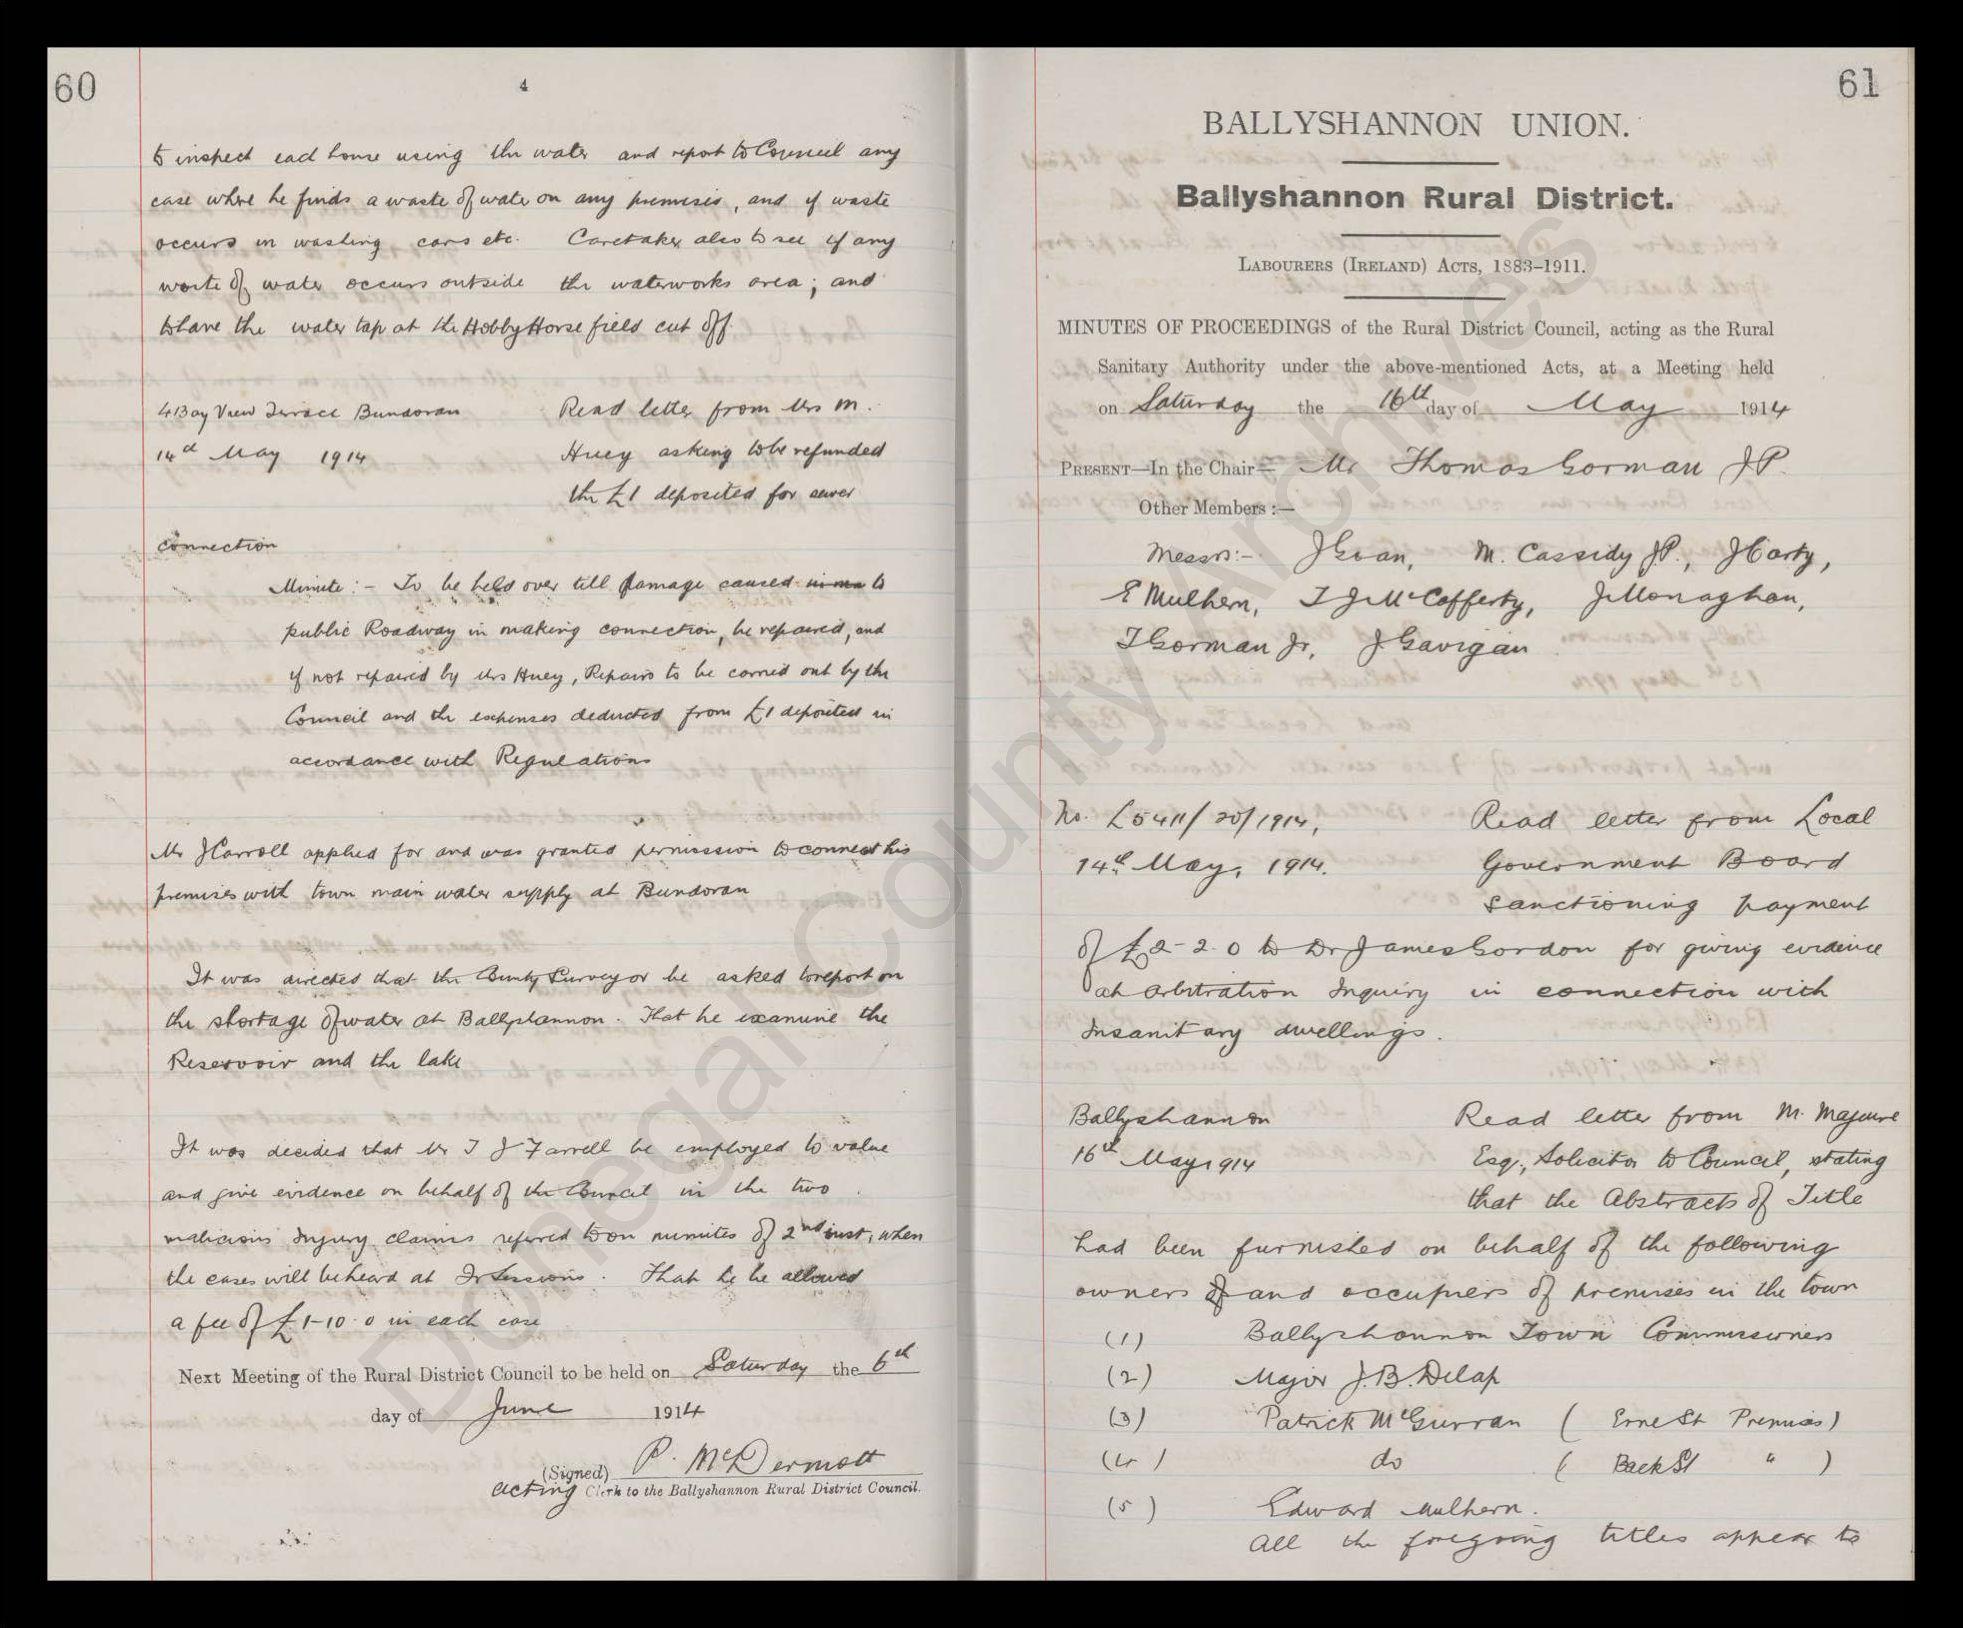 60
4
to inspect each house using the water and report to Council any
case where he finds a waste of water on any premises, and if waste
occurs in washing cars etc. Caretaker also to see if any
waste of water occurs outside the waterworks area; and
to have the water tap at the Hobby Horse field cut off.
4 Bay View Terrace Bundoran Read letter from Mrs M.
14th May 1914 Huey asking to be refunded
the £1 deposited for sewer
connection
Minute:- To be held over till damage caused to
public Roadway in making connection, be repaired, and
if not repaired by Mrs Huey, Repairs to be carried out by the
Council and the expenses deducted from £1 deposited in
accordance with Regulations
Mr J Carroll applied for and was granted permission to connect his
premises with town main water supply at Bundoran
It was directed that the County Surveyor be asked to report on
the shortage of water at Ballyshannon. That he examine the
Reservoir and the lake
It was decided that Mr T J Farrell be employed to value
and give evidence on behalf of the Council in the two
malicious Injury claims referred to on minutes of 2nd inst, when
the cases will be heard at Qr Sessions. That he be allowed
a fee of £1-10-0 in each case
Next Meeting of the Rural District Council to be held on Saturday the 6th
day of June 1914
(Signed) P. McDermott
acting Clerk to the Ballyshannon Rural District Council.
61
BALLYSHANNON UNION.
Ballyshannon Rural District.
LABOURERS (IRELAND) ACTS, 1883-1911.
MINUTES OF PROCEEDINGS of the Rural District Council, acting as the Rural
Sanitary Authority under the above-mentioned Acts, at a Meeting held
on Saturday the 16th day of May 1914
PRESENT—In the Chair— Mr Thomas Gorman J.P.
Other Members:—
Messrs:- J Goan, M. Cassidy J.P., J Carty,
E Mulhern, T J McCafferty, J Monaghan,
T Gorman Jr, J Gavigan
No. L5411/20/1914, Read letter from Local
14th May, 1914. Government Board
sanctioning payment
of £2-2.0 to Dr James Gordon for giving evidence
at Arbitration Inquiry in connection with
Insanitary dwellings.
Ballyshannon Read letter from M. Maguire
16th May 1914 Esq., Solicitor to Council, stating
that the Abstracts of Title
had been furnished on behalf of the following
owners and occupiers of premises in the town
(1) Ballyshannon Town Commissioners
(2) Major J.B. Delap
(3) Patrick McGurran (Erne St Premises)
(4) do (Back St " )
(5) Edward Mulhern.
All the foregoing titles appear to
Donegal County Archives